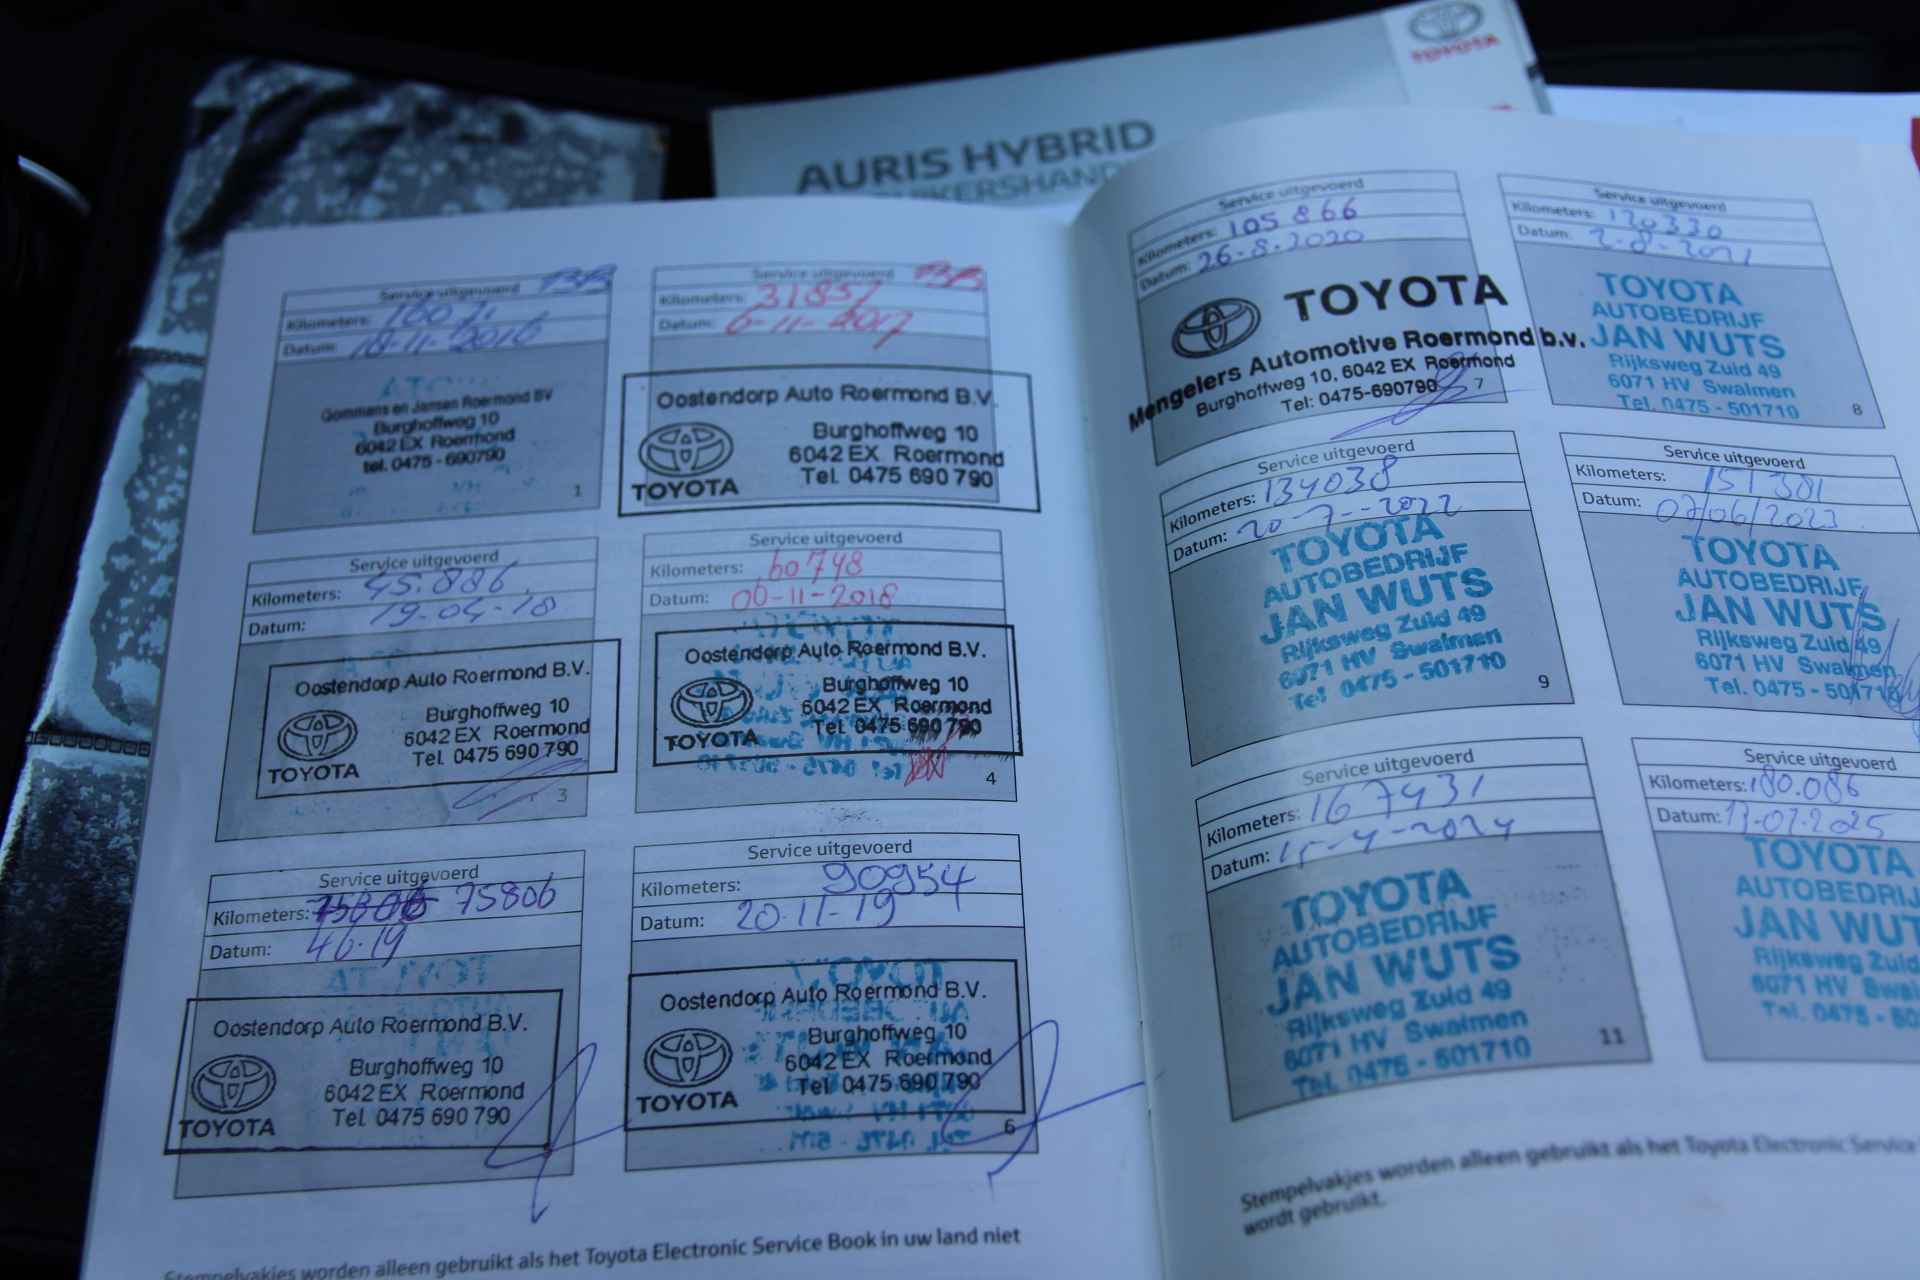 TOYOTA
AURIS HYBRID
Service uitgevoerd
Kilometers:
Datum: 18-11-2016
Gommans en Jansen Roermond BV
Burghoffweg 10
6042 EX Roermond
tel. 0475 - 690790
1
Service uitgevoerd
Kilometers: 31857
Datum: 6-11-2017
Oostendorp Auto Roermond B.V.
Burghoffweg 10
6042 EX Roermond
Tel. 0475 690 790
TOYOTA
Service uitgevoerd
Kilometers: 45.886.
Datum: 19-04-18
Oostendorp Auto Roermond B.V.
Burghoffweg 10
6042 EX Roermond
Tel. 0475 690 790
TOYOTA
3
Service uitgevoerd
Kilometers: 60748
Datum: 06-11-2018
Oostendorp Auto Roermond B.V.
Burghoffweg 10
6042 EX Roermond
Tel. 0475 690 790
TOYOTA
4
Service uitgevoerd
Kilometers: 75806
Datum: 4-6-19
Oostendorp Auto Roermond B.V.
Burghoffweg 10
6042 EX Roermond
Tel. 0475 690 790
TOYOTA
Service uitgevoerd
Kilometers: 90954
Datum: 20-11-19
Oostendorp Auto Roermond B.V.
Burghoffweg 10
6042 EX Roermond
Tel. 0475 690 790
TOYOTA
6
Stempelvakjes worden alleen gebruikt als het Toyota Electronic Service Book in uw land niet
Service uitgevoerd
Kilometers: 105866
Datum: 26-8-2020
TOYOTA
Mengelers Automotive Roermond b.v.
Burghoffweg 10, 6042 EX Roermond
Tel: 0475-690790
7
Service uitgevoerd
Kilometers: 120330
Datum: 2-8-2021
TOYOTA
AUTOBEDRIJF
JAN WUTS
Rijksweg Zuid 49
6071 HV Swalmen
Tel. 0475 - 501710
8
Service uitgevoerd
Kilometers: 134038
Datum: 20-7-2022
TOYOTA
AUTOBEDRIJF
JAN WUTS
Rijksweg Zuid 49
6071 HV Swalmen
Tel. 0475 - 501710
9
Service uitgevoerd
Kilometers: 151381
Datum: 07/06/2023
TOYOTA
AUTOBEDRIJF
JAN WUTS
Rijksweg Zuid 49
6071 HV Swalmen
Tel. 0475 - 501710
Service uitgevoerd
Kilometers: 167431
Datum: 15-4-2024
TOYOTA
AUTOBEDRIJF
JAN WUTS
Rijksweg Zuid 49
6071 HV Swalmen
Tel. 0475 - 501710
11
Service uitgevoerd
Kilometers: 180.086
Datum: 13-02-2025
TOYOTA
AUTOBEDRIJ
JAN WUT
Rijksweg Zuid
6071 HV Swal
Tel. 0475 - 50
Stempelvakjes worden alleen gebruikt als het Toyota Electronic Service
wordt gebruikt.